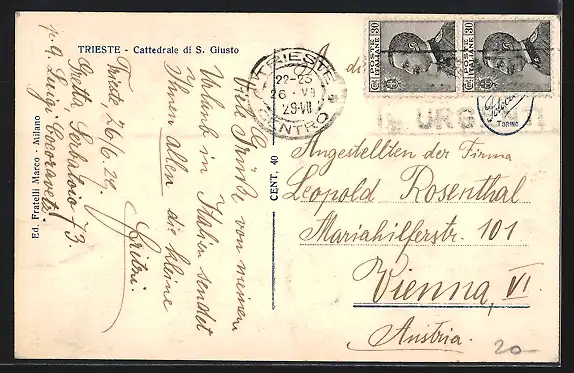 TRIESTE - Cattedrale di S. Giusto
Viele Grüße von meinem
Urlaub in Italien sendet
Ihnen allen die kleine
Trieste, 26/6. 29.
Gretta Serbatoio 73
p. a. Luigi
Ed. Fratelli Marco - Milano
CENT. 40
TRIESTE
CENTRO
22-23
26 VI
29-VII
POSTE
ITALIANE
CENT 30
POSTE
ITALIANE
CENT 30
TORINO
URG
A di
Angestellten der Firma
Leopold Rosenthal
Mariahilferstr. 101
Vienna, VI.
Austria.
20-